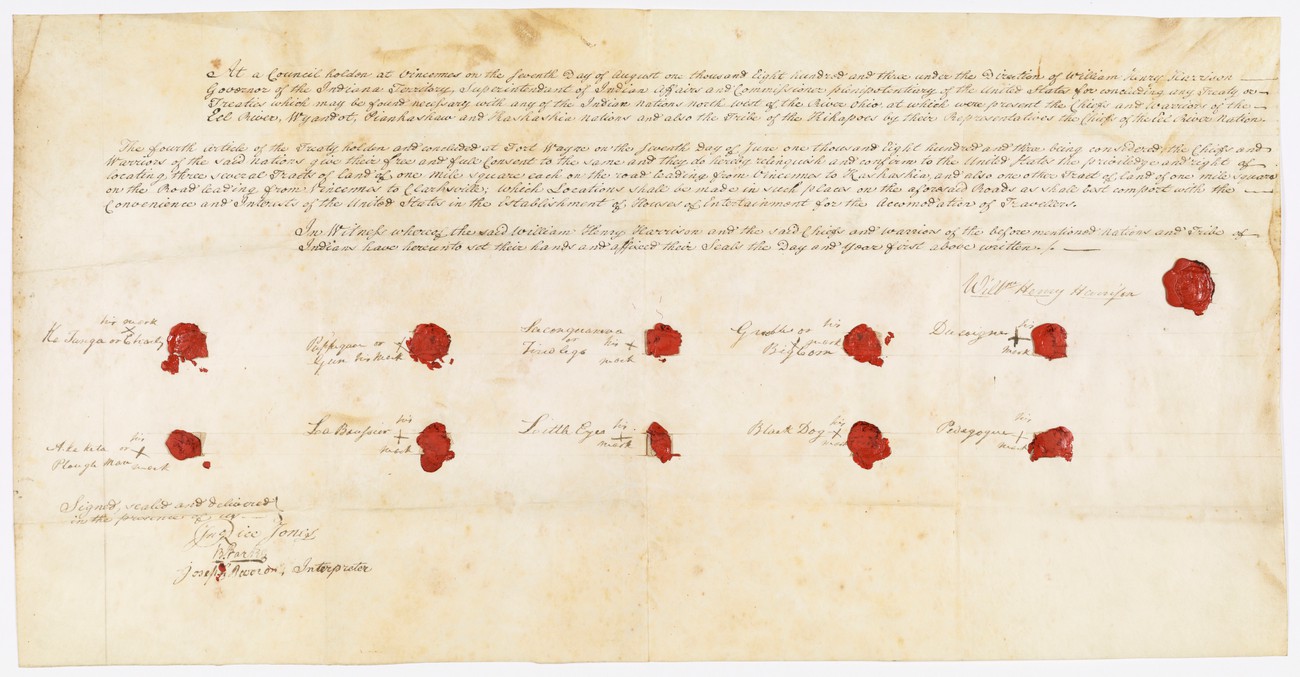 At a Council holden at Vincennes on the Seventh Day of August one thousand Eight hundred and three under the Direction of William Henry Harrison
Governor of the Indiana Territory, Superintendant of Indian Affairs and Commissioner plenipotentiary of the United States for concluding any Treaty or
Treaties which may be found necessary with any of the Indian nations north west of the River Ohio at which were present the Chiefs and Warriors of the
Eel River, Wyandot, Piankashaw and Kaskaskia nations and also the Tribe of the Kikapoes by their Representatives the Chiefs of the Eel River Nation.
The fourth article of the Treaty holden and concluded at Fort Wayne on the Seventh day of June one thousand Eight hundred and three being considered, the Chiefs and
Warriors of the said Nations give their free and full Consent to the same and they do hereby relinquish and confirm to the United States the priviledge and right of
locating three several Tracts of land of one Mile square each on the road leading from Vincennes to Kaskaskia, and also one other Tract of land of one mile square
on the Road leading from Vincennes to Clarksville; which Locations shall be made in such places on the aforesaid Roads as shall best comport with the
Convenience and Interests of the United States in the Establishment of Houses of Entertainment for the Accomodation of Travellers.
In Witness whereof the said William Henry Harrison and the said Chiefs and warriors of the before mentioned nations and Tribe of
Indians have hereunto set their hands and affixed their Seals the Day and Year first above written /
Will^m Henry Harrison
Ka Tunga or Charly his mark
Puppequor or Gun his mark
Saconquaneva or Tired legs his mark
Grosble or Big Corn his mark
Ducoigne his mark
Akaketa or Plough Man his mark
La Boussier his mark
Little Eyes his mark
Black Dog his mark
Pedagogue his mark
Signed, sealed and delivered
in the presence of us
Jno Rice Jones
B. Parke
Joseph Barron, Interpreter